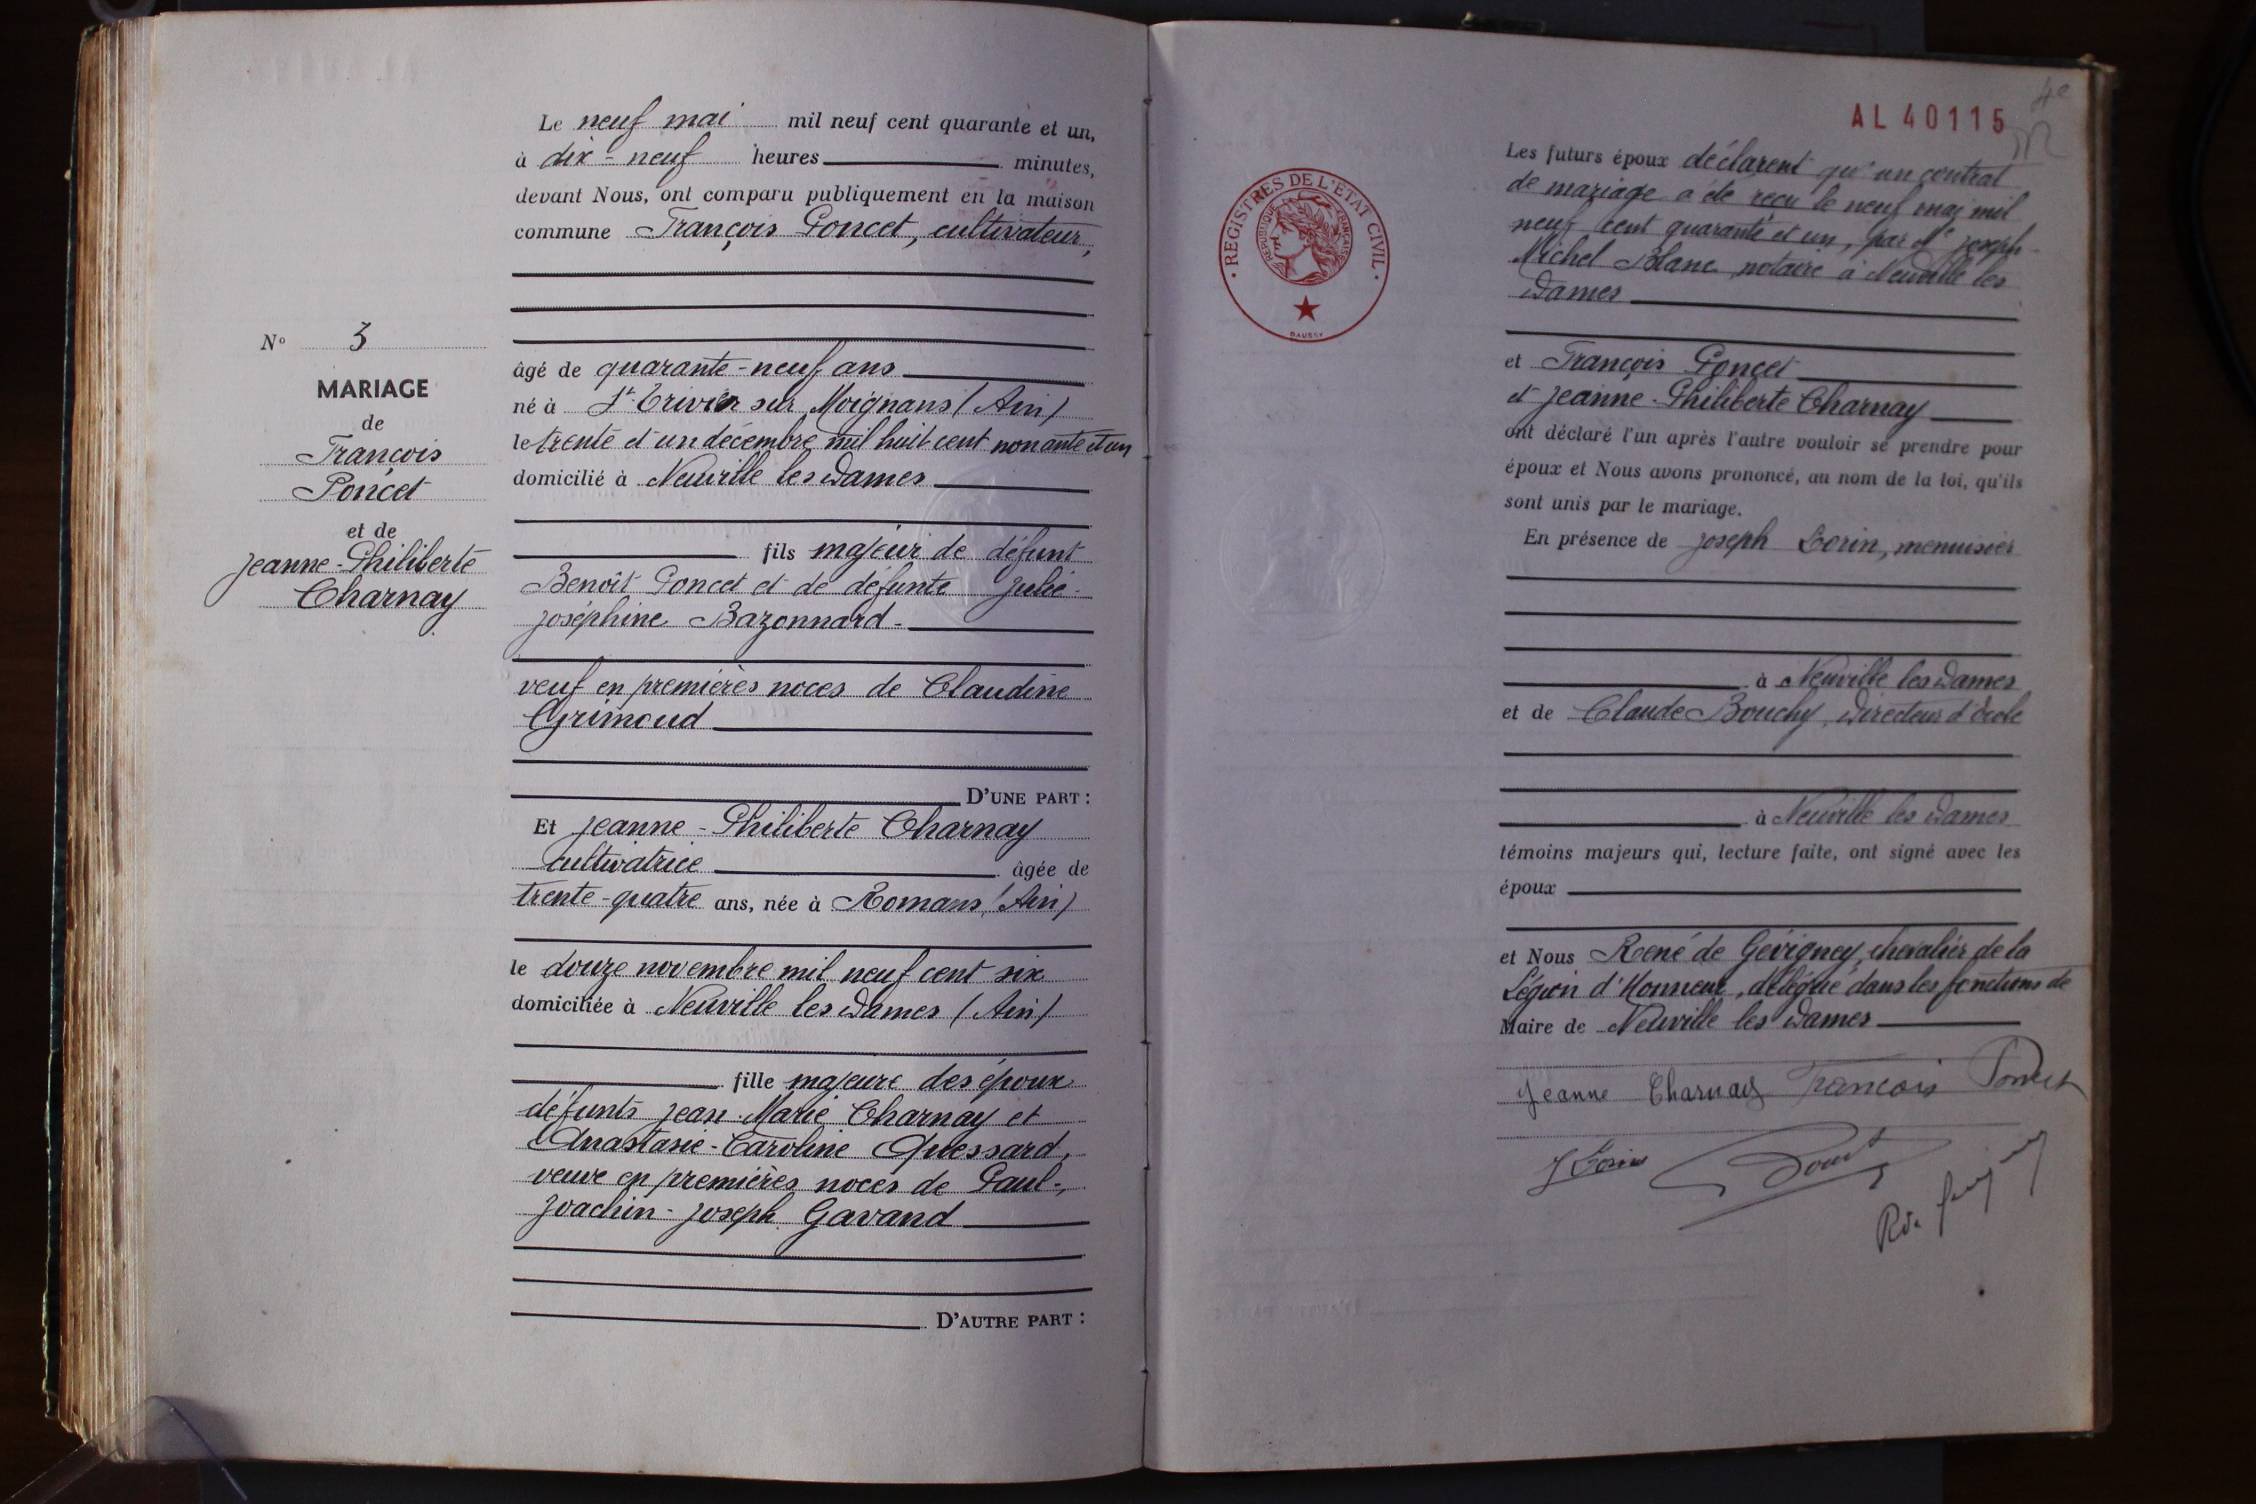 N° 3
MARIAGE
de
François
Poncet
et de
Jeanne-Philiberte
Charnay
Le neuf mai mil neuf cent quarante et un,
à dix-neuf heures minutes,
devant Nous, ont comparu publiquement en la maison
commune François Poncet, cultivateur,
âgé de quarante-neuf ans
né à St Trivier sur Moignans (Ain)
le trente et un décembre mil huit cent nonante et un
domicilié à Neuville les Dames
fils majeur de défunt
Benoît Poncet et de défunte Julie-
Joséphine Bazonnard-
veuf en premières noces de Claudine
Grimoud
D'UNE PART :
Et Jeanne-Philiberte Charnay
cultivatrice âgée de
trente-quatre ans, née à Romans (Ain)
le douze novembre mil neuf cent six
domiciliée à Neuville les Dames (Ain)
fille majeure des époux
défunts Jean-Marie Charnay et
Anastasie-Caroline Quessard,
veuve en premières noces de Paul-
Joachin-Joseph Gavand
D'AUTRE PART :
AL 40115
REGISTRES DE L'ETAT CIVIL
REPUBLIQUE FRANÇAISE
DAUSSY
Les futurs époux déclarent qu'un contrat
de mariage a été reçu le neuf mai mil
neuf cent quarante et un, par Me Joseph-
Michel Blanc notaire à Neuville les
Dames
et François Poncet
et Jeanne-Philiberte Charnay
ont déclaré l'un après l'autre vouloir se prendre pour
époux et Nous avons prononcé, au nom de la loi, qu'ils
sont unis par le mariage.
En présence de Joseph Lorin, menuisier
à Neuville les Dames
et de Claude Bouchy, Directeur d'école
à Neuville les Dames
témoins majeurs qui, lecture faite, ont signé avec les
époux
et Nous René de Gévigney, chevalier de la
Légion d'Honneur, délégué dans les fonctions de
Maire de Neuville les Dames
Jeanne Charnay François Poncet
J Lorin